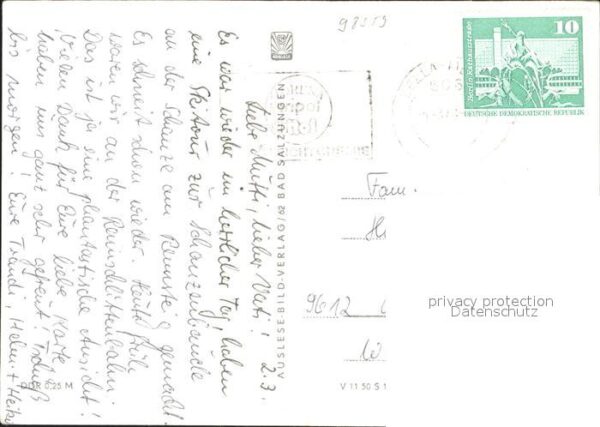 98559
Liebe Mutti, lieber Vati! 2.3.
Es war wieder ein herrlicher Tag! haben
eine Skitour zur Schanzenbaude
an der Schanze am Rennsteig gemacht.
Es schneit schon wieder. Heute früh
waren wir an der Rennschlittenbahn.
Das ist ja eine phantastische Ansicht!
Vielen Dank für Eure liebe Karte
haben uns ganz sehr gefreut! Tschüß
bis morgen! Eure Traudi, Helm. + Heike
AUSLESE-BILD-VERLAG 62 BAD SALZUNGEN
DDR 0,25 M
V 11 50 S 1
10
Berlin, Rathausstraße
DEUTSCHE DEMOKRATISCHE REPUBLIK
Fam.
9612
privacy protection
Datenschutz